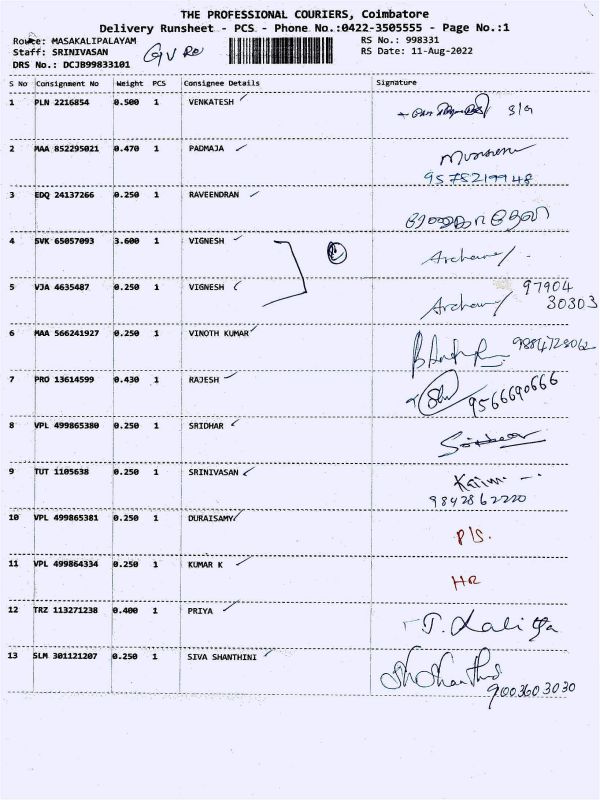 THE PROFESSIONAL COURIERS, Coimbatore
Delivery Runsheet - PCS - Phone No.:0422-3505555 - Page No.:1
Route: MASAKALIPALAYAM
RS No.: 998331
Staff: SRINIVASAN
RS Date: 11-Aug-2022
DRS No.: DCJB99833101
S No Consignment No Weight PCS Consignee Details Signature
1 PLN 2216854 0.500 1 VENKATESH
2 MAA 852295021 0.470 1 PADMAJA
9578219948
3 EDQ 24137266 0.250 1 RAVEENDRAN
4 SVK 65057093 3.600 1 VIGNESH
5 VJA 4635487 0.250 1 VIGNESH 97904
30303
6 MAA 566241927 0.250 1 VINOTH KUMAR
7 PRO 13614599 0.430 1 RAJESH
9566690666
8 VPL 499865380 0.250 1 SRIDHAR
9 TUT 1105638 0.250 1 SRINIVASAN
9842862220
10 VPL 499865381 0.250 1 DURAISAMY
P/S.
11 VPL 499864334 0.250 1 KUMAR K
HR
12 TRZ 113271238 0.400 1 PRIYA
T. Lalitha
13 SLM 301121207 0.250 1 SIVA SHANTHINI
9003603030